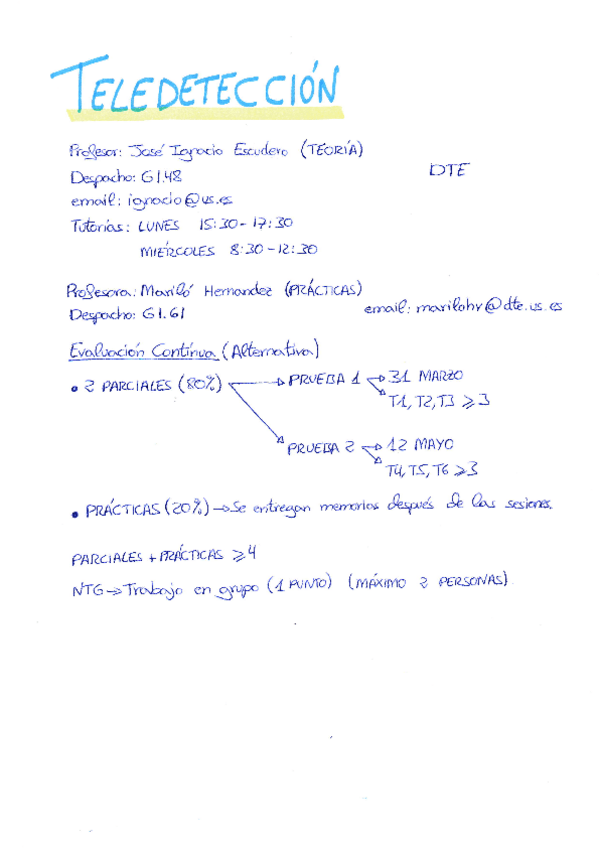 TELEDETECCIÓN
Profesor: José Ignacio Escudero (TEORÍA)
DTE
Despacho: G1.48
email: ignacio@us.es
Tutorías: LUNES 15:30-17:30
MIÉRCOLES 8:30-12:30
Profesora: Mariló Hernandez (PRÁCTICAS)
Despacho: G1.61
email: marilohv@dte.us.es
Evaluación Contínua (Alternativa)
• 2 PARCIALES (80%) → PRUEBA 1 → 31 MARZO
T1, T2, T3 ⩾ 3
PRUEBA 2 → 12 MAYO
T4, T5, T6 ⩾ 3
• PRÁCTICAS (20%) → Se entregan memorias después de las sesiones.
PARCIALES + PRÁCTICAS ⩾ 4
NTG → Trabajo en grupo (1 PUNTO) (MÁXIMO 2 PERSONAS)